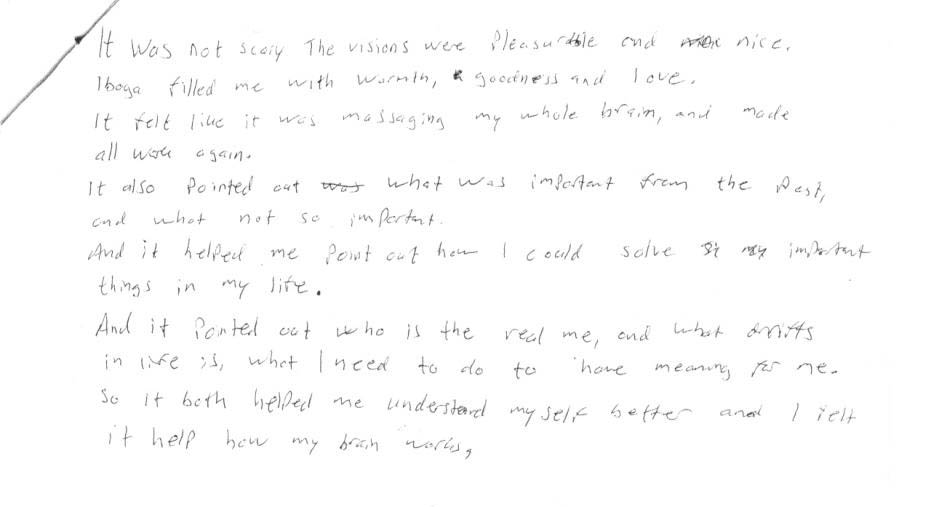 It was not scary The visions were Pleasurable and nice.
Iboga filled me with warmth, goodness and love.
It felt like it was massaging my whole brain, and made
all work again.
It also Pointed out was what was important from the Past,
and what not so important.
And it helped me Point out how I could solve my important
things in my life.
And it Pointed out who is the real me, and what
in life is, what I need to do to have meaning for me.
So it both helped me understand myself better and I felt
it help how my brain works,